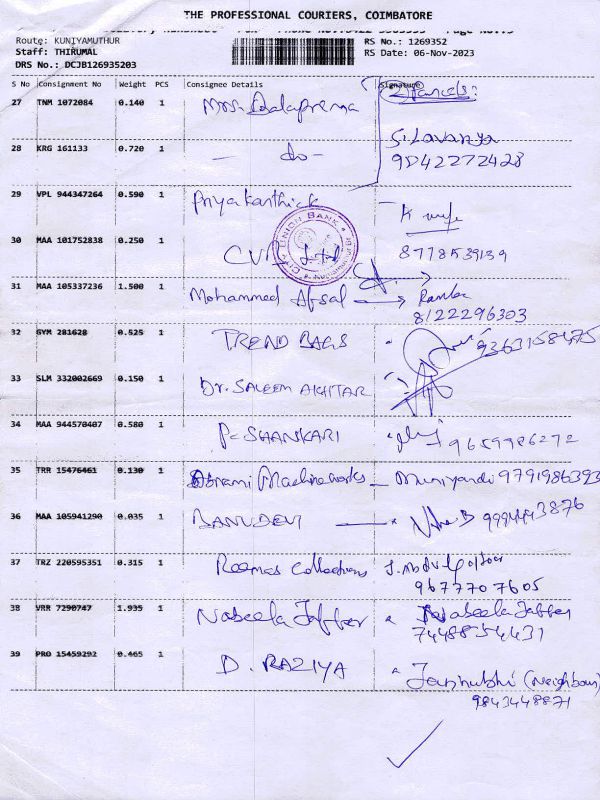 THE PROFESSIONAL COURIERS, COIMBATORE
Route: KUNIYAMUTHUR RS No.: 1269352
Staff: THIRUMAL RS Date: 06-Nov-2023
DRS No.: DCJB126935203
S No Consignment No Weight PCS Consignee Details Signature
27 TNM 1072084 0.140 1 Mrs. Balaprema 2 Parcels:
S. Lavanya
28 KRG 161133 0.720 1 - do - 9042272428
29 VPL 944347264 0.590 1 Priya karthick K wife
30 MAA 101752838 0.250 1 CVB Ltd 8778539139
CITY UNION BANK
31 MAA 105337236 1.500 1 Mohammed Afsal Ramba
8122296303
32 GYM 281628 0.525 1 TREND BAGS 9363158475
33 SLM 332002669 0.150 1 Dr. SALEEM AKHTAR
34 MAA 944570407 0.580 1 P. SHANKARI 9659986272
35 TRR 15476461 0.130 1 Abrami Machine works - Muniyandi 9791986393
36 MAA 105941290 0.035 1 BANUDEVI 9994443876
37 TRZ 220595351 0.315 1 Reemas Collections J. Abdul
9677707605
38 VRR 7290747 1.935 1 Nabeela Jaffer Nabeela Jaffer
7448854431
39 PRO 15459292 0.465 1 D. RAZIYA (Neighbour)
9843448871